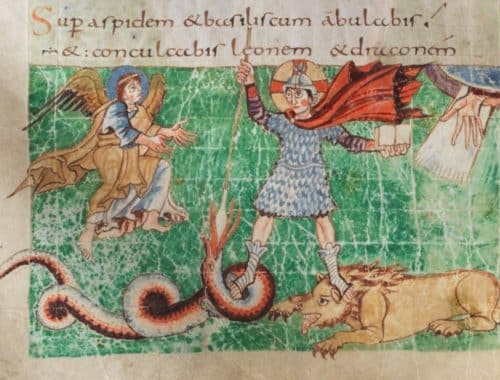 Sup aspidem & basiliscum ābulabis
& conculcabis leonem & draconem